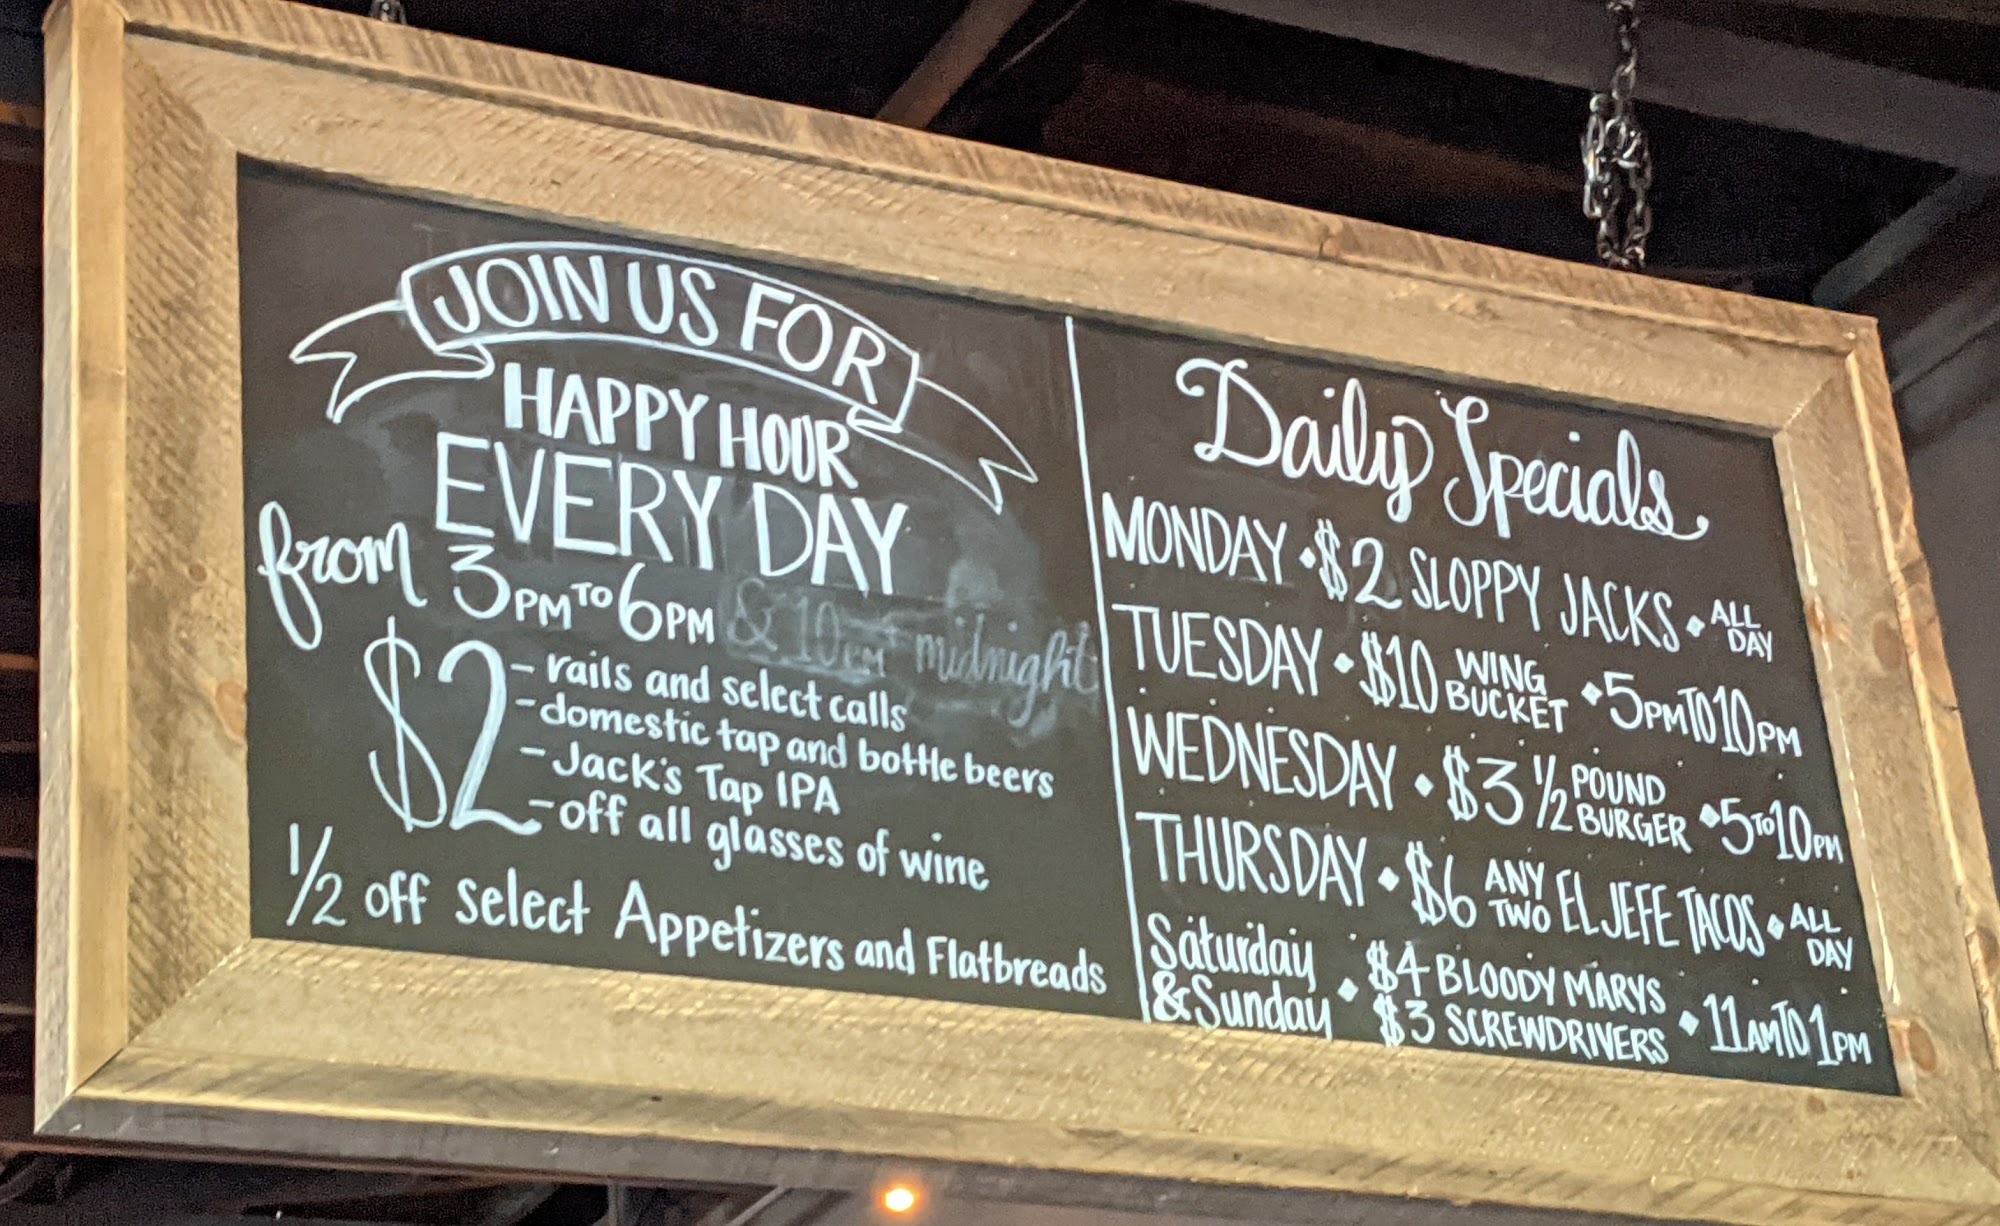 JOIN US FOR
HAPPY HOUR
EVERY DAY
from 3PM TO 6PM & 10PM midnight
$2 - rails and select calls
- domestic tap and bottle beers
- Jack's Tap IPA
- off all glasses of wine
1/2 off select Appetizers and Flatbreads
Daily Specials
MONDAY • $2 SLOPPY JACKS • ALL DAY
TUESDAY • $10 WING BUCKET • 5PM TO 10PM
WEDNESDAY • $3 1/2 POUND BURGER • 5 TO 10PM
THURSDAY • $6 ANY TWO EL JEFE TACOS • ALL DAY
Saturday & Sunday • $4 BLOODY MARYS $3 SCREWDRIVERS • 11AM TO 1PM